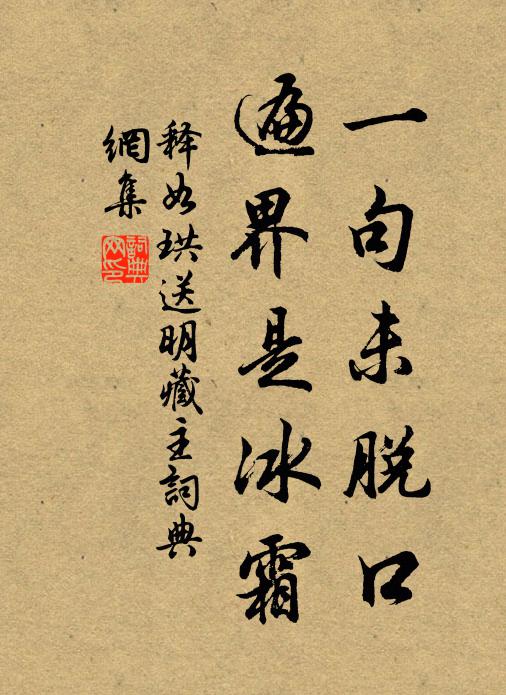 一句未脱口
遍界是冰霜
释如珙送明藏主詞典
網集
詞典網印